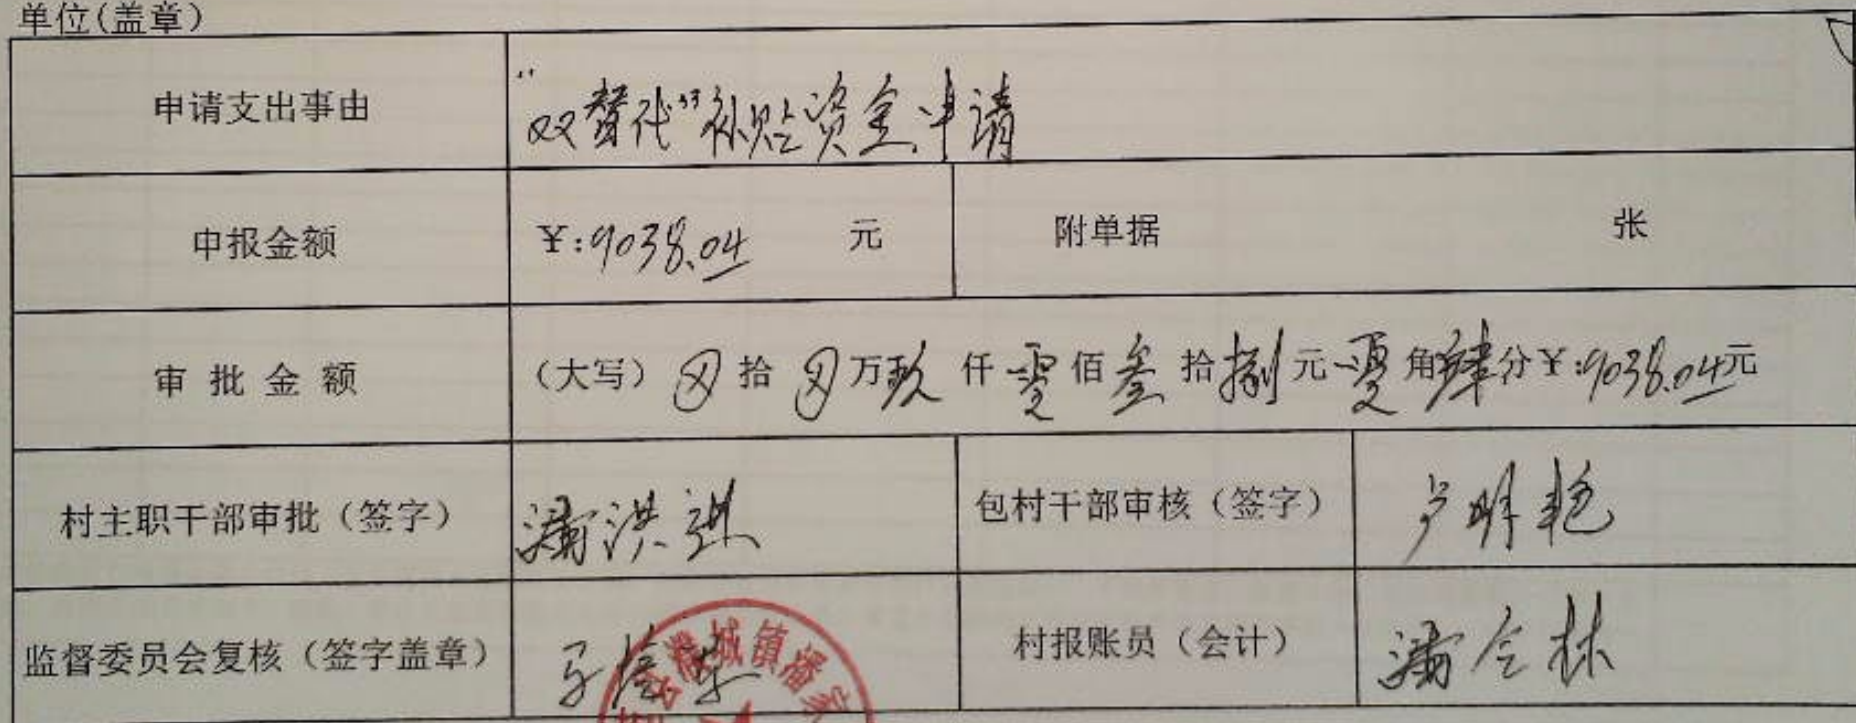 单位(盖章)
申请支出事由 “双替代”补贴资金申请
申报金额 ¥:9038.04 元 附单据 张
审批金额 (大写) 拾 万玖仟零佰叁拾捌元零角肆分¥:9038.04元
村主职干部审批(签字) 潘洪 包村干部审核(签字) 卢明艳
监督委员会复核(签字盖章) 村报账员(会计) 潘会林
濮城镇潘家